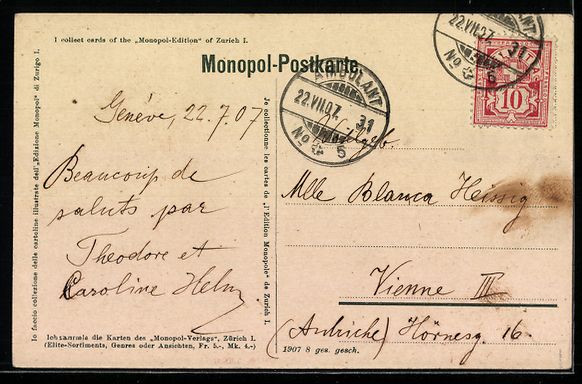 I collect cards of the „Monopol-Edition" of Zurich I.
Monopol-Postkarte.
Io faccio collezione delle cartoline illustrate dell'„Edizione Monopol" di Zurigo I.
Genève, 22.7.07
Beaucoup de
saluts par
Theodore et
Caroline Helm
Je collectionne les cartes de „l'Edition Monopole" de Zurich I.
Ich sammle die Karten des „Monopol-Verlags", Zürich I.
(Elite-Sortiments, Genres oder Ansichten, Fr. 5.-, Mk. 4.-)
AMBULANT
22.VII.07. 31
No 5
AMBULANT
22.VII.07. 31
No 5
10
Mlle Blanca Heissig
Vienne III
(Autriche) Hörnesg. 16.
1907 8 ges. gesch.